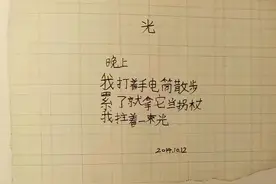 光
晚上
我打着手电筒散步
累了就拿它当拐杖
我拄着一束光
2014.10.12